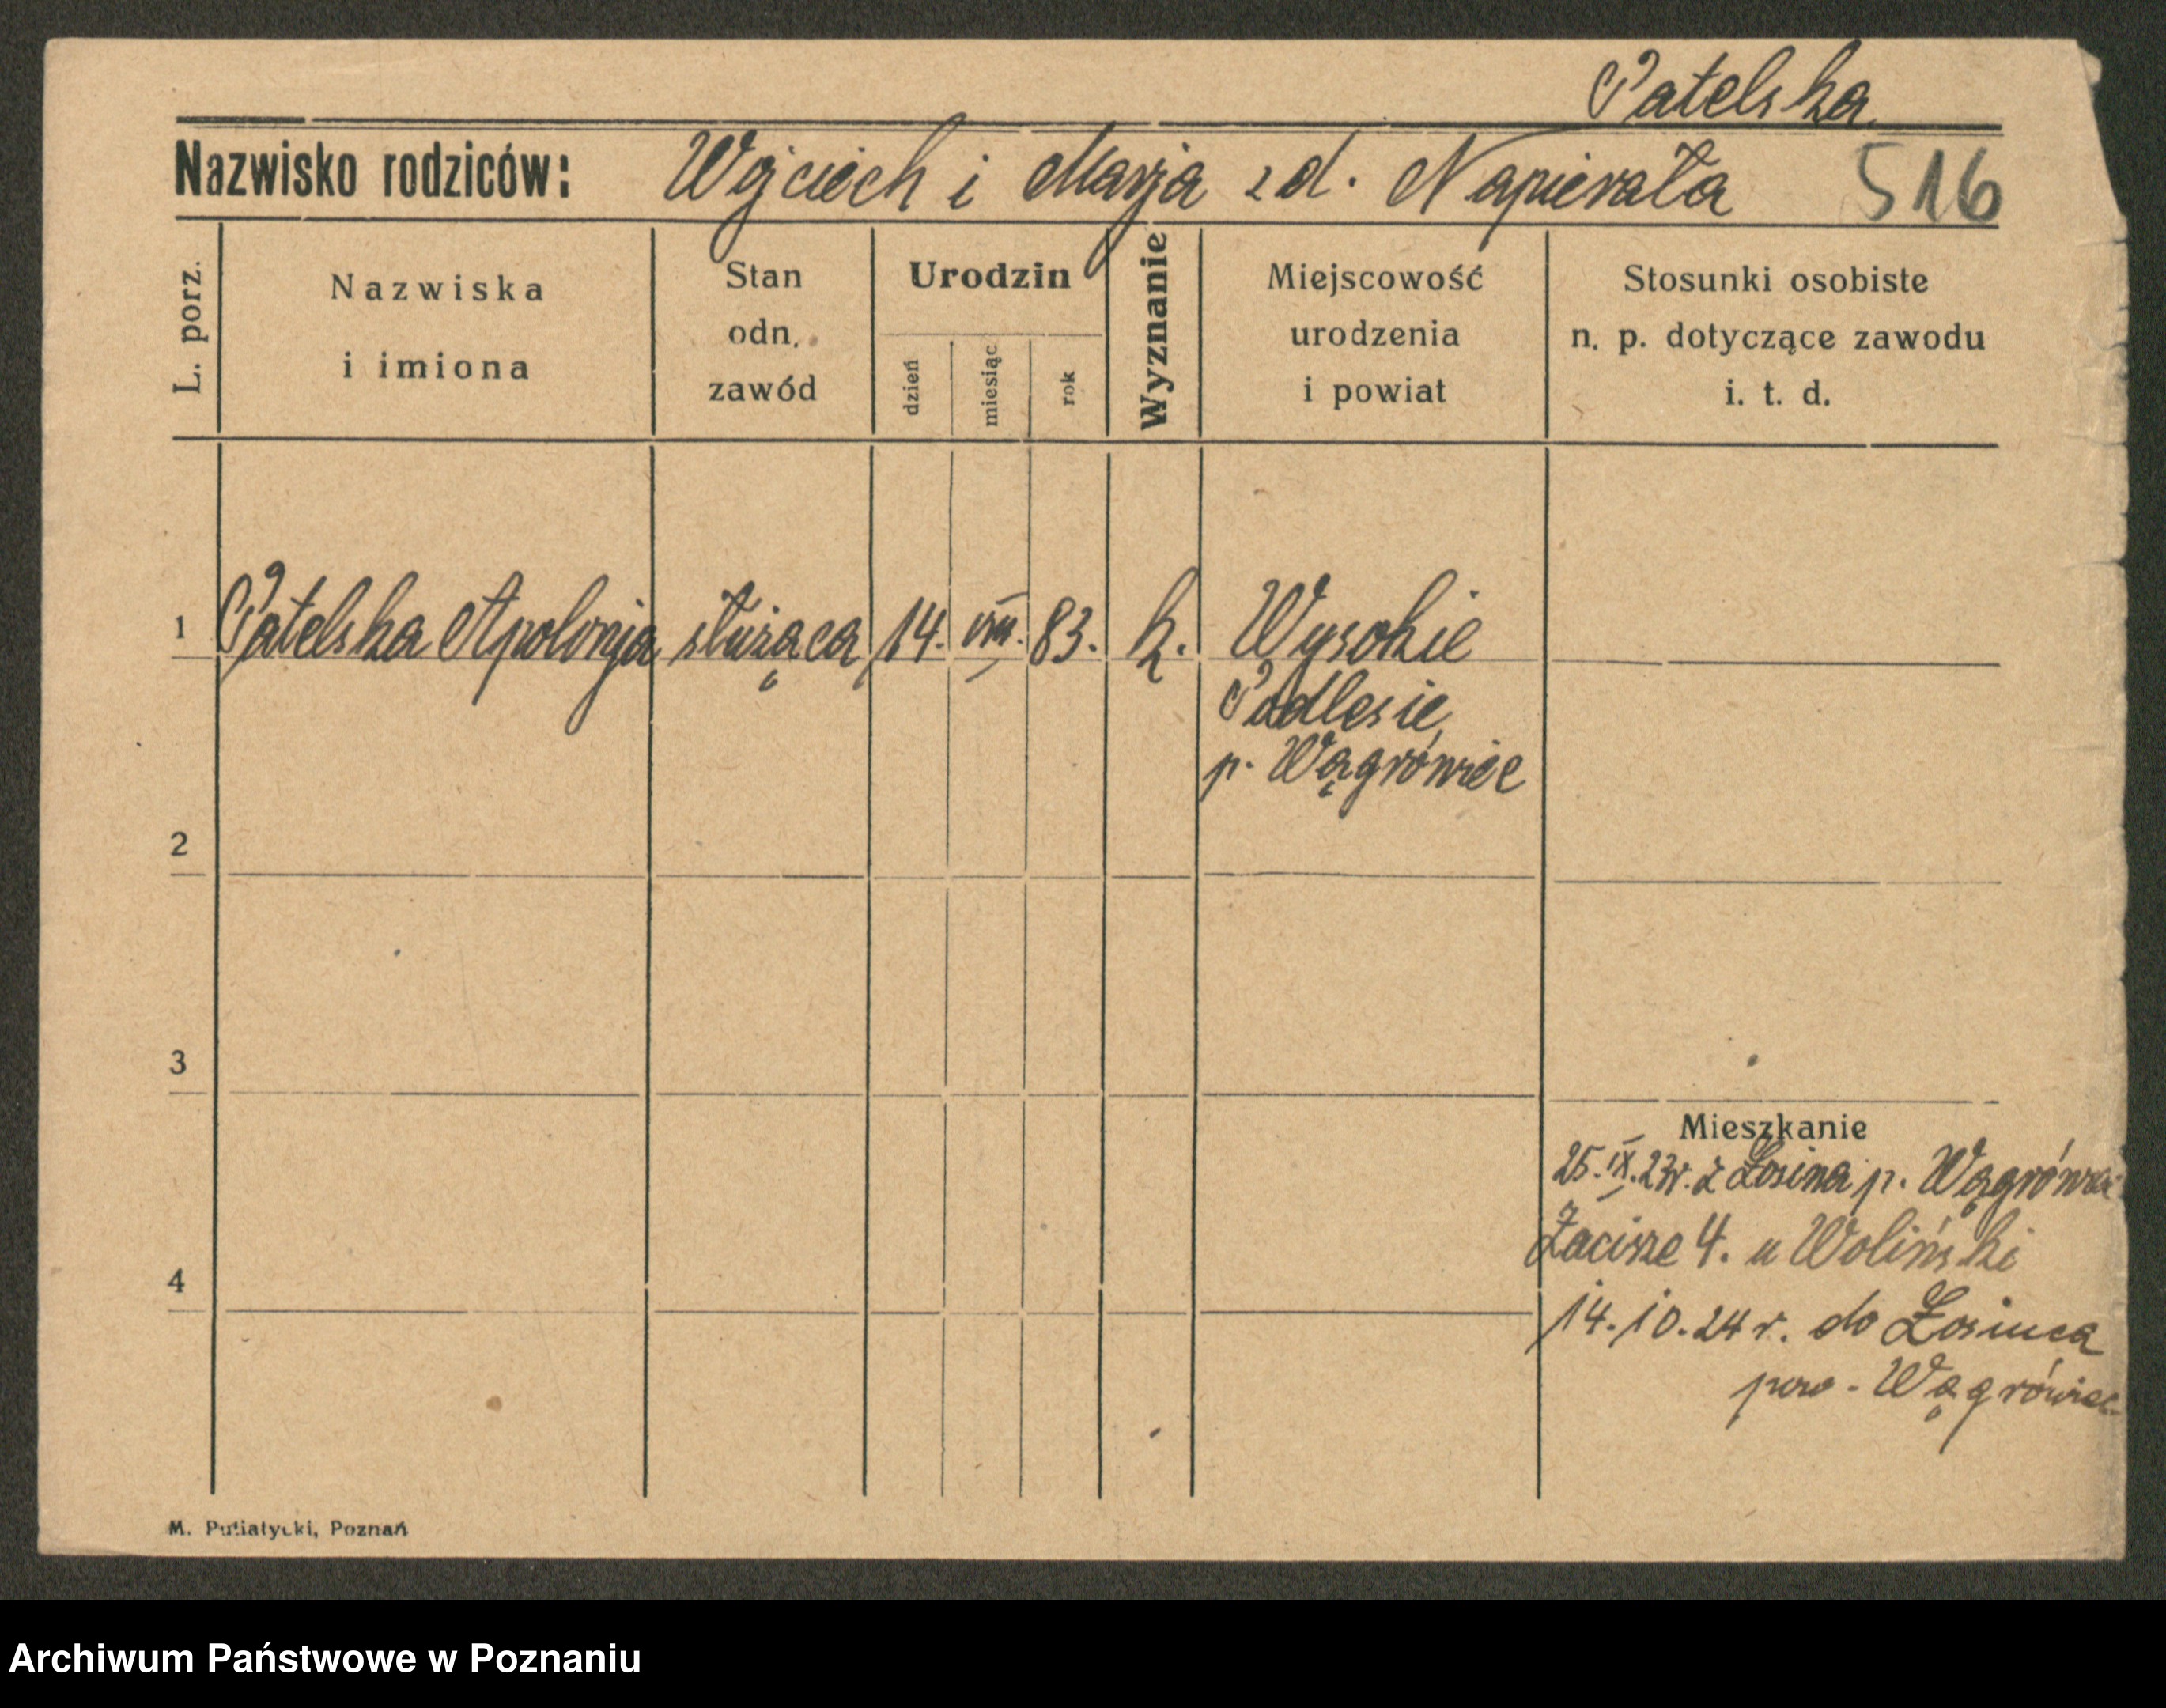 Patelska
Nazwisko rodziców: Wojciech i Marja z d. Napierała 516
L. porz.
Nazwiska
i imiona
Stan
odn.
zawód
Urodzin
dzień
miesiąc
rok
Wyznanie
Miejscowość
urodzenia
i powiat
Stosunki osobiste
n. p. dotyczące zawodu
i. t. d.
1 Patelska Apolonja służąca 14. VIII. 83. k. Wysokie
Podlesie,
p. Wągrówiec
2
3
Mieszkanie
25. IX. 23 r. z p. Wągrówiec
Zacisze 4. u Woliński
4
14.10.24 r. do
pow. Wągrówiec
M. Putiatycki, Poznań
Archiwum Państwowe w Poznaniu